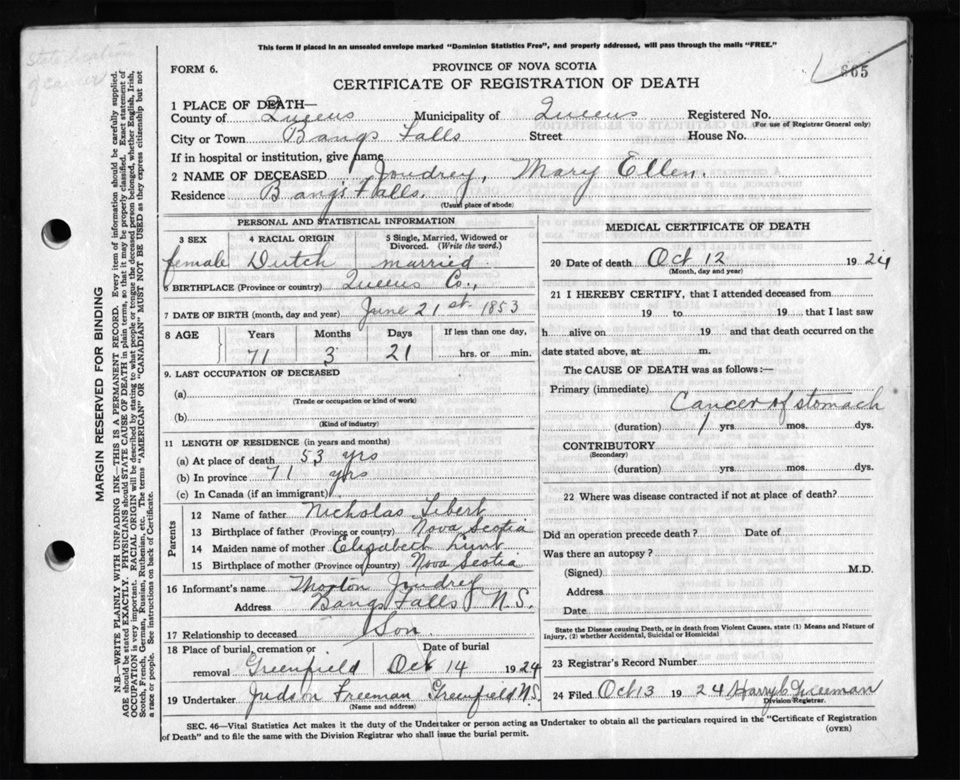 This form if placed in an unsealed envelope marked "Dominion Statistics Free", and properly addressed, will pass through the mails "FREE."
of cancer
PROVINCE OF NOVA SCOTIA
FORM 6.
CERTIFICATE OF REGISTRATION OF DEATH
865
1 PLACE OF DEATH—
County of Queens Municipality of Queens Registered No.
(For use of Registrar General only)
City or Town Bangs Falls Street House No.
If in hospital or institution, give name
2 NAME OF DECEASED Joudrey, Mary Ellen.
Residence Bangs Falls.
(Usual place of abode)
PERSONAL AND STATISTICAL INFORMATION
3 SEX 4 RACIAL ORIGIN 5 Single, Married, Widowed or Divorced. (Write the word.)
female Dutch married
6 BIRTHPLACE (Province or country) Queens Co.,
7 DATE OF BIRTH (month, day and year) June 21st 1853
8 AGE Years Months Days If less than one day,
71 3 21 hrs. or min.
9. LAST OCCUPATION OF DECEASED
(a)
(Trade or occupation or kind of work)
(b)
(Kind of industry)
11 LENGTH OF RESIDENCE (in years and months)
(a) At place of death 53 yrs
(b) In province 71 yrs
(c) In Canada (if an immigrant)
Parents
12 Name of father Nicholas Tibert
13 Birthplace of father (Province or country) Nova Scotia
14 Maiden name of mother Elizabeth
15 Birthplace of mother (Province or country) Nova Scotia
16 Informant's name Morton Joudrey
Address Bangs Falls N.S.
17 Relationship to deceased Son.
18 Place of burial, cremation or removal Date of burial
Greenfield Oct 14 1924
19 Undertaker Judson Freeman Greenfield N.S.
(Name and address)
MEDICAL CERTIFICATE OF DEATH
20 Date of death Oct 12 1924
(Month, day and year)
21 I HEREBY CERTIFY, that I attended deceased from
19 to 19 that I last saw
h alive on 19 and that death occurred on the
date stated above, at m.
The CAUSE OF DEATH was as follows:—
Primary (immediate) Cancer of stomach
(duration) 1 yrs. mos. dys.
CONTRIBUTORY
(Secondary)
(duration) yrs. mos. dys.
22 Where was disease contracted if not at place of death?
Did an operation precede death? Date of
Was there an autopsy?
(Signed) M.D.
Address
Date
State the Disease causing Death, or in death from Violent Causes, state (1) Means and Nature of
Injury, (2) whether Accidental, Suicidal or Homicidal
23 Registrar's Record Number
24 Filed Oct 13 1924 Harry C Freeman
Division Registrar.
SEC. 46—Vital Statistics Act makes it the duty of the Undertaker or person acting as Undertaker to obtain all the particulars required in the "Certificate of Registration
of Death" and to file the same with the Division Registrar who shall issue the burial permit.
(OVER)
MARGIN RESERVED FOR BINDING
N.B.—WRITE PLAINLY WITH UNFADING INK—THIS IS A PERMANENT RECORD. Every item of information should be carefully supplied.
AGE should be stated EXACTLY. PHYSICIANS should STATE CAUSE OF DEATH in plain terms, so that it may be properly classified. Exact statement of
OCCUPATION is very important. RACIAL ORIGIN will be described by stating to what people or tongue the deceased person belonged, whether English, Irish,
Scotch, French, German, Russian, Ruthenian, etc. The terms "AMERICAN" OR "CANADIAN" MUST NOT BE USED as they express citizenship but not
a race or people. See instructions on back of Certificate.